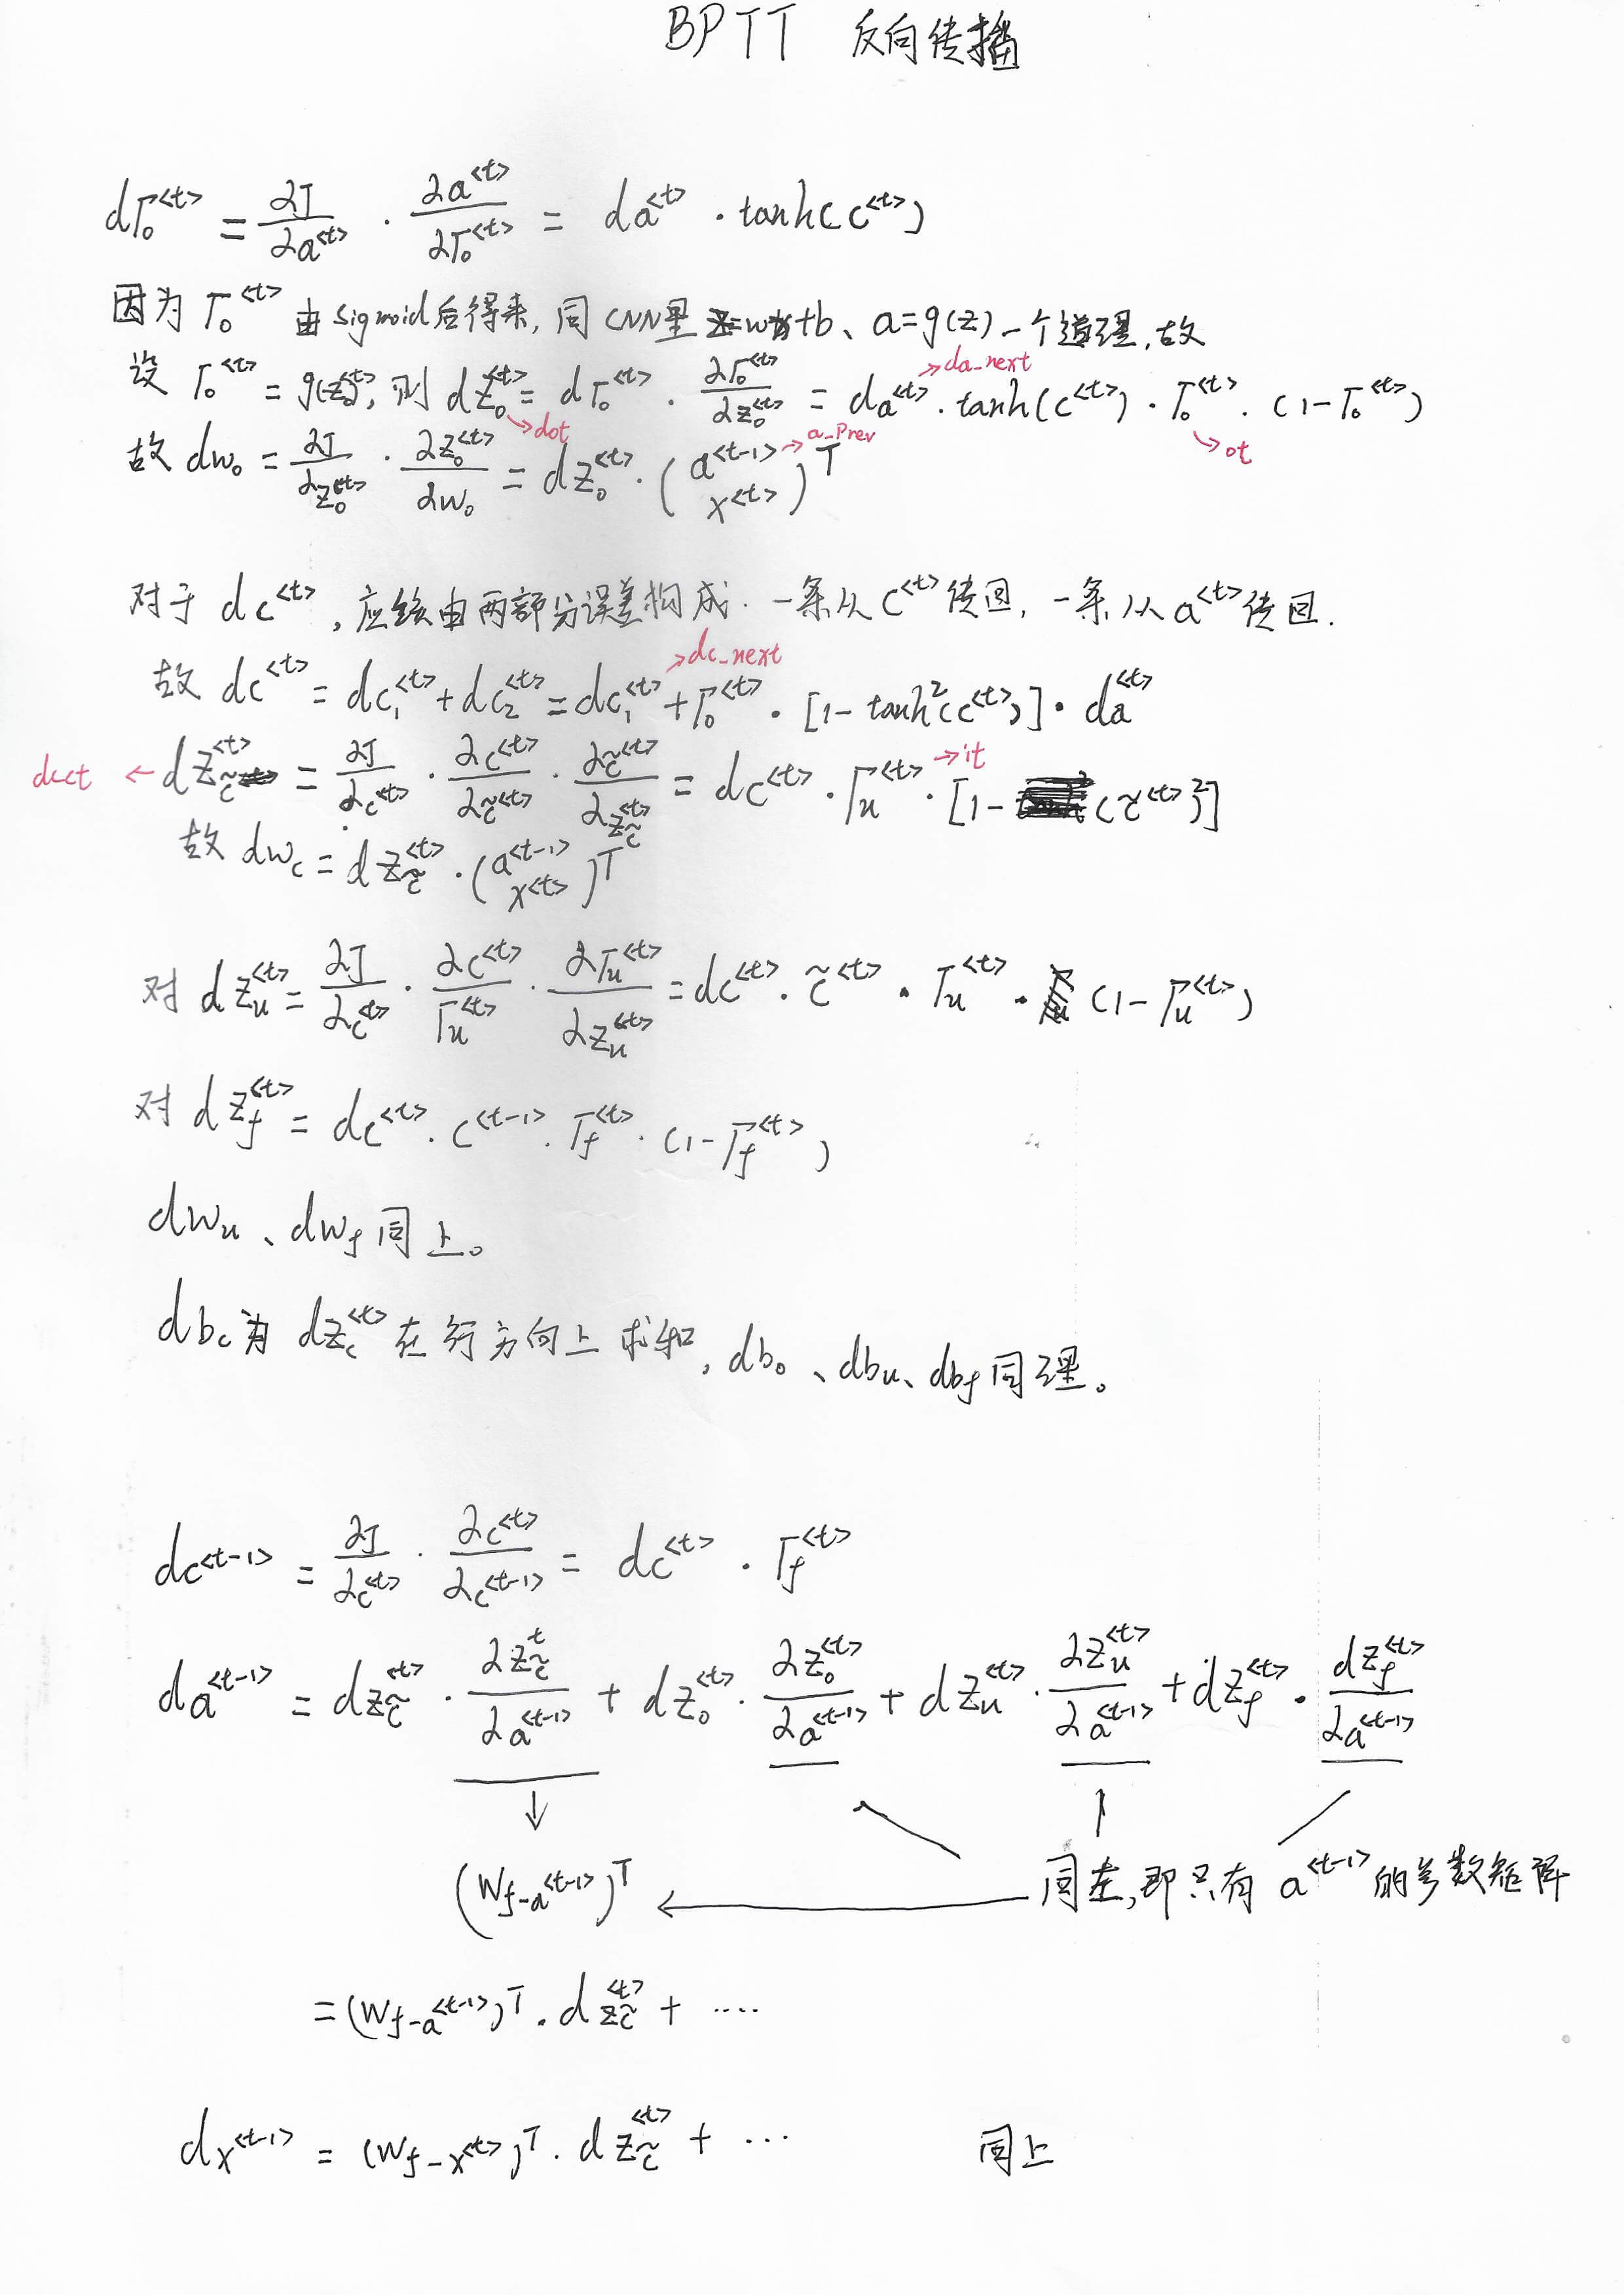 BPTT 反向传播
dΓₒ^<t> = ∂J/∂a^<t> · ∂a^<t>/∂Γₒ^<t> = da^<t> · tanh(c^<t>)
因为 Γₒ^<t> 由sigmoid后得来, 同CNN里 z=wx+b、a=g(z)一个道理, 故
→da_next
设 Γₒ^<t> = g(zₒ^<t>), 则 dzₒ^<t> = dΓₒ^<t> · ∂Γₒ^<t>/∂zₒ^<t> = da^<t> · tanh(c^<t>) · Γₒ^<t> · (1-Γₒ^<t>)
→dot →a_prev →ot
故 dwₒ = ∂J/∂zₒ^<t> · ∂zₒ^<t>/∂wₒ = dzₒ^<t> · (a^<t-1> x^<t>)^T
对于 dc^<t>, 应该由两部分误差构成. 一条从 c^<t> 传回, 一条从 a^<t> 传回.
→dc_next
故 dc^<t> = dc₁^<t> + dc₂^<t> = dc₁^<t> + Γₒ^<t> · [1-tanh²(c^<t>)] · da^<t>
→it
dcct ← dz_c̃^<t> = ∂J/∂c^<t> · ∂c^<t>/∂c̃^<t> · ∂c̃^<t>/∂z_c̃^<t> = dc^<t> · Γu^<t> · [1-(c̃^<t>)²]
故 dw_c = dz_c̃^<t> · (a^<t-1> x^<t>)^T
对 dz_u^<t> = ∂J/∂c^<t> · ∂c^<t>/Γu^<t> · ∂Γu^<t>/∂z_u^<t> = dc^<t> · c̃^<t> · Γu^<t> · (1-Γu^<t>)
对 dz_f^<t> = dc^<t> · c^<t-1> · Γf^<t> · (1-Γf^<t>)
dw_u、dw_f同上。
db_c为 dz_c^<t> 在行方向上求和, dbₒ、db_u、db_f同理。
dc^<t-1> = ∂J/∂c^<t> · ∂c^<t>/∂c^<t-1> = dc^<t> · Γf^<t>
da^<t-1> = dz_c̃^<t> · ∂z_c̃^t/∂a^<t-1> + dzₒ^<t> · ∂zₒ^<t>/∂a^<t-1> + dz_u^<t> · ∂z_u^<t>/∂a^<t-1> + dz_f^<t> · dz_f^<t>/∂a^<t-1>
(W_f-a^<t-1>)^T ← 同左, 即只有 a^<t-1> 的参数矩阵
= (W_f-a^<t-1>)^T · dz_c̃^<t> + ....
dx^<t-1> = (W_f-x^<t>)^T · dz_c̃^<t> + ... 同上